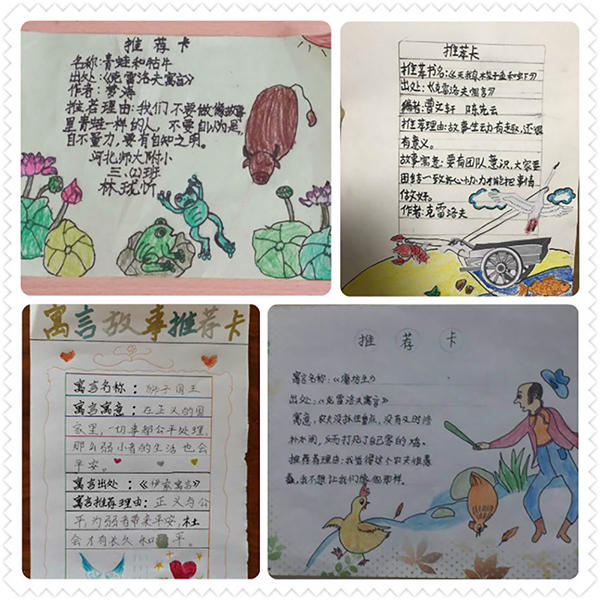 推荐卡
名称:青蛙和牯牛
出处:《克雷洛夫寓言》
作者:梦海
推者理由:我们不要做像故事
里青蛙一样的人,不要自以为是,
自不量力,要有自知之明。
河北师大附小
三.(2)班
林珑忻
推荐卡
推荐书名:《天鹅、梭鱼和虾》
出处:《克雷洛夫寓言》
编者:曹文轩 陈先云
推荐理由:故事生动有趣,还很
有意义。
故事寓意:要有团队意识,大家要
团结一致齐心协力,才能把事情
做好。
作者:克雷洛夫
寓言故事推荐卡
寓言名称:狮子国王
寓言寓意:在正义的国
家里,一切事都公平处理,
那么弱小者的生活也会
平安。
寓言出处:《伊索寓言》
寓言推荐理由:正义与公
平,为弱者带来平安,社
会才有长久和平。
推荐卡
寓言名称:《磨坊主》
出处:《克雷洛夫寓言》
寓意:农夫没抓住重点,没有及时修
补水闸,反而打死了自己家的鸡。
推荐者理由:我觉得这个农夫很愚
蠢,我不想让我们像他那样。